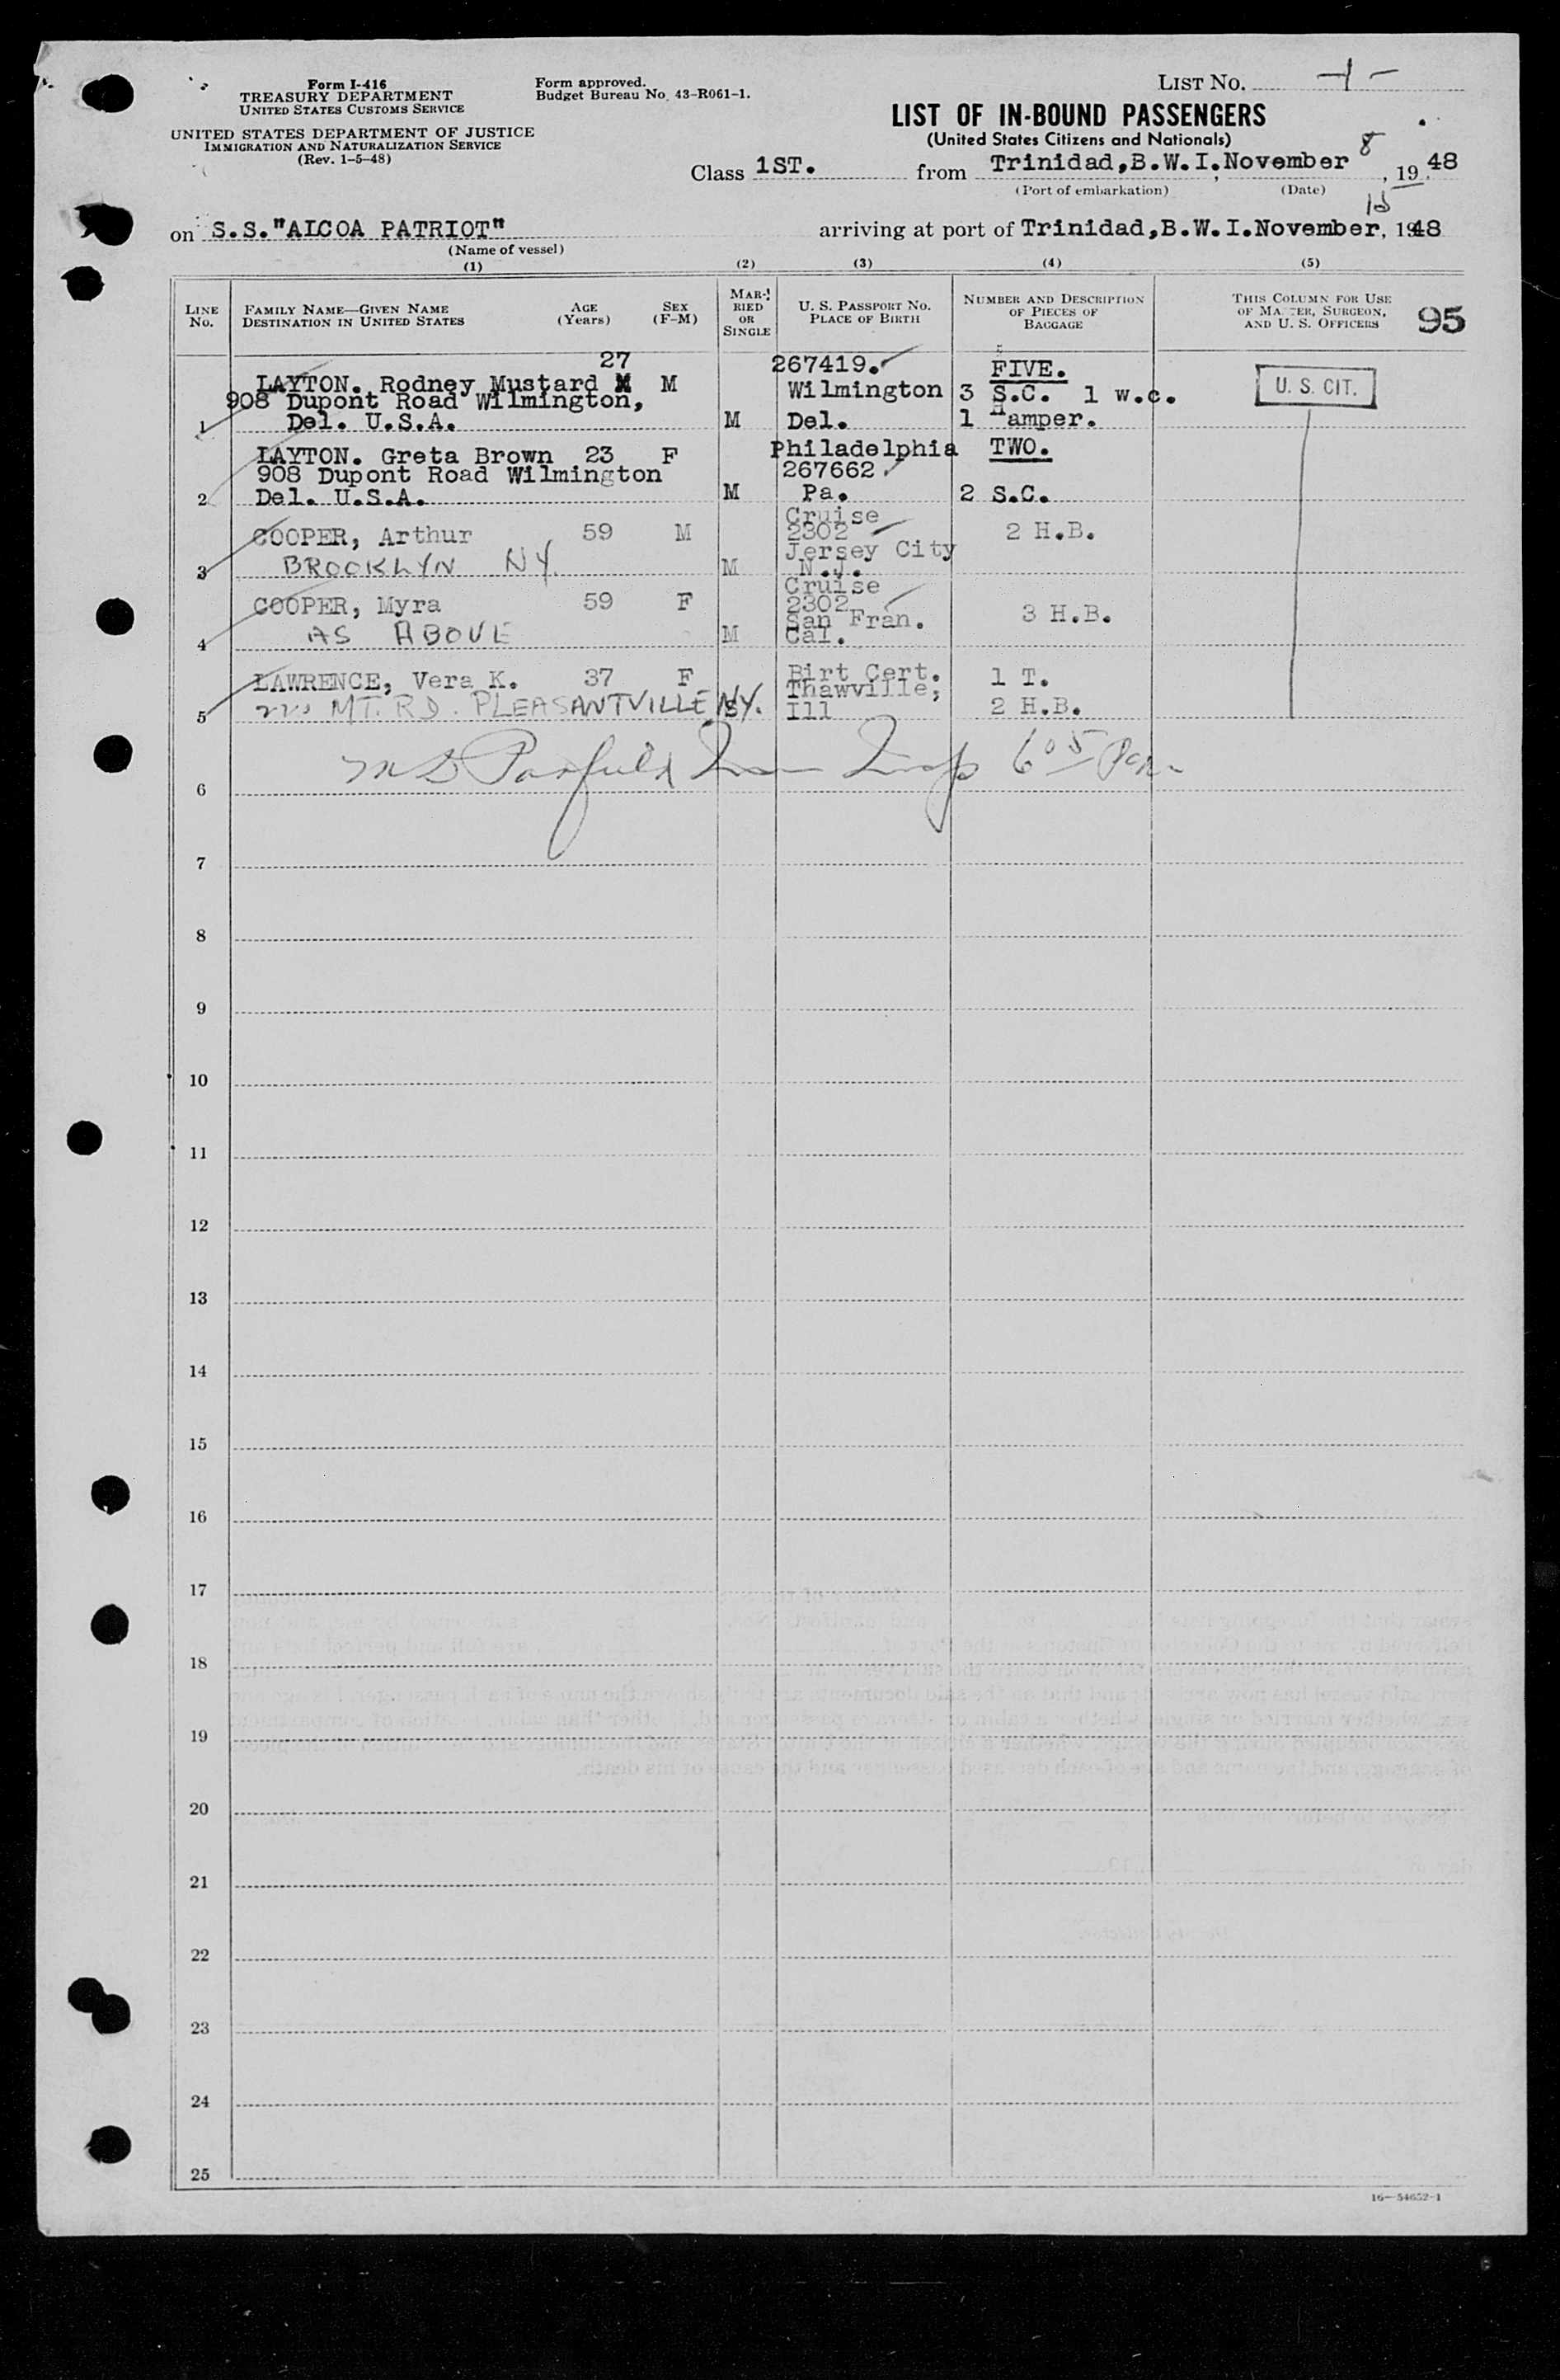 Form I-416
TREASURY DEPARTMENT
UNITED STATES CUSTOMS SERVICE
UNITED STATES DEPARTMENT OF JUSTICE
IMMIGRATION AND NATURALIZATION SERVICE
(Rev. 1-5-48)
Form approved.
Budget Bureau No. 43-R061-1.
LIST NO. -1-
LIST OF IN-BOUND PASSENGERS
(United States Citizens and Nationals)
Class 1ST. from Trinidad,B.W.I. November 8, 1948
(Port of embarkation) (Date)
on S.S."ALCOA PATRIOT" arriving at port of Trinidad,B.W.I.November 15, 1948
(Name of vessel)
(1) (2) (3) (4) (5)
LINE No. FAMILY NAME—GIVEN NAME DESTINATION IN UNITED STATES AGE (Years) SEX (F-M) MARRIED OR SINGLE U. S. PASSPORT NO. PLACE OF BIRTH NUMBER AND DESCRIPTION OF PIECES OF BAGGAGE THIS COLUMN FOR USE OF MASTER, SURGEON, AND U. S. OFFICERS 95
27 267419. FIVE.
LAYTON. Rodney Mustard M Wilmington 3 S.C. 1 w.c. U. S. CIT.
908 Dupont Road Wilmington,
1 Del. U.S.A. M Del. 1 Hamper.
LAYTON. Greta Brown 23 F Philadelphia TWO.
908 Dupont Road Wilmington 267662
2 Del. U.S.A. M Pa. 2 S.C.
COOPER, Arthur 59 M Cruise 2302 2 H.B.
Jersey City
3 BROOKLYN NY. M N.J.
COOPER, Myra 59 F Cruise 2302 3 H.B.
San Fran.
4 AS ABOVE M Cal.
LAWRENCE, Vera K. 37 F Birt Cert. 1 T.
Thawville,
5 MT. RD. PLEASANTVILLE NY. S Ill 2 H.B.
6 605 Pm
7
8
9
10
11
12
13
14
15
16
17
18
19
20
21
22
23
24
25
16—54652-1